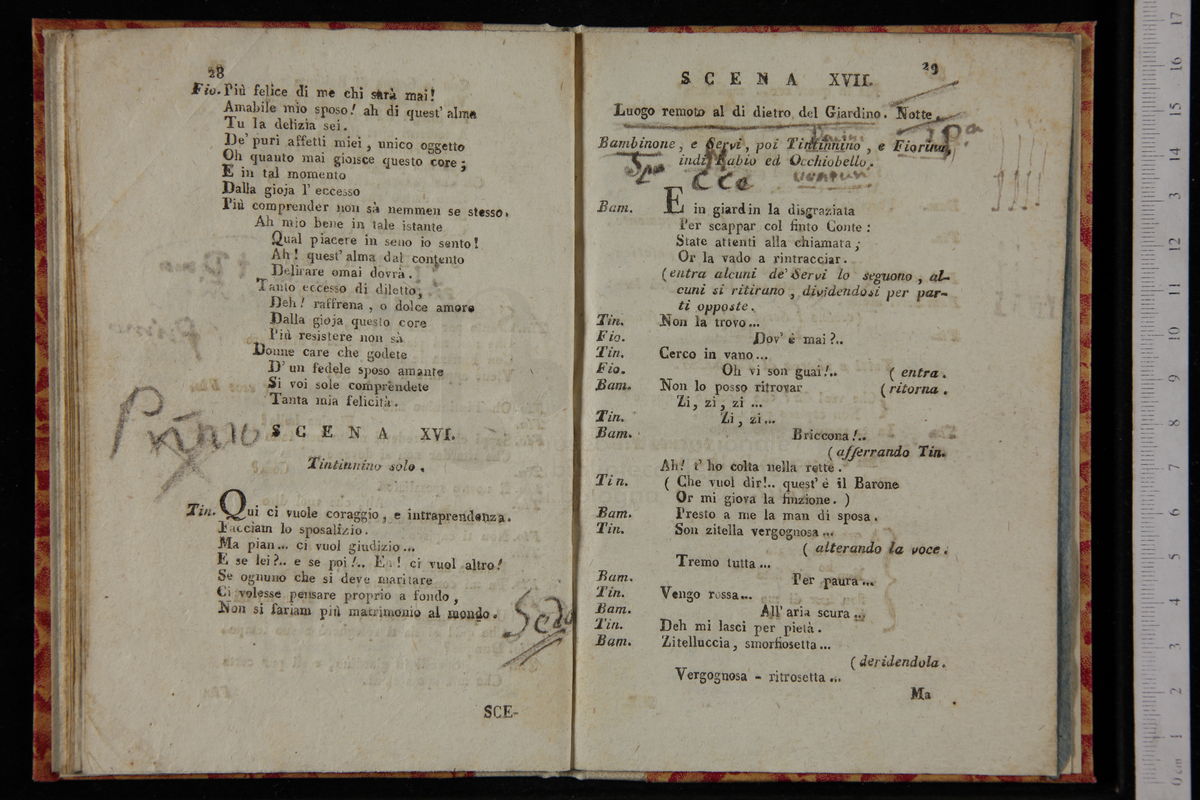 28
Fio. Più felice di me chi sarà mai!
Amabile mio sposo! ah di quest' alma
Tu la delizia sei.
De' puri affetti miei, unico oggetto
Oh quanto mai gioisce questo core;
E in tal momento
Dalla gioja l' eccesso
Più comprender non sà nemmen se stesso.
Ah mio bene in tale istante
Qual piacere in seno io sento!
Ah! quest' alma dal contento
Delirare omai dovrà.
Tanto eccesso di diletto,
Deh! raffrena, o dolce amore
Dalla gioja questo core
Più resistere non sà
Donne care che godete
D' un fedele sposo amante
Si voi sole comprendete
Tanta mia felicità.
Primo
SCENA XVI.
Tintinnino solo.
Tin. Qui ci vuole coraggio, e intraprendenza.
Facciam lo sposalizio.
Ma pian... ci vuol giudizio...
E se lei?.. e se poi!.. Eh! ci vuol altro!
Se ognuno che si deve maritare
Ci volesse pensare proprio a fondo,
Non si fariam più matrimonio al mondo.
SCE-
29
SCENA XVII.
Luogo remoto al di dietro del Giardino. Notte.
Bambinone, e Servi, poi Tintinnino, e Fiorina,
indi Fabio ed Occhiobello.
Bam. E in giardin la disgraziata
Per scappar col finto Conte:
State attenti alla chiamata;
Or la vado a rintracciar.
(entra alcuni de' Servi lo seguono, al-
cuni si ritirano, dividendosi per par-
ti opposte.
Tin. Non la trovo...
Fio. Dov' è mai?..
Tin. Cerco in vano...
Fio. Oh vi son guai!.. (entra.
Bam. Non lo posso ritrovar (ritorna.
Zi, zi, zi...
Tin. Zi, zi...
Bam. Briccona!..
(afferrando Tin.
Ah! t' ho colta nella rette.
Tin. (Che vuol dir!.. quest' è il Barone
Or mi giova la finzione.)
Bam. Presto a me la man di sposa.
Tin. Son zitella vergognosa...
(alterando la voce.
Tremo tutta...
Bam. Per paura...
Tin. Vengo rossa...
Bam. All' aria scura...
Tin. Deh mi lasci per pietà.
Bam. Zitelluccia, smorfiosetta...
(deridendola.
Vergognosa - ritrosetta...
Ma